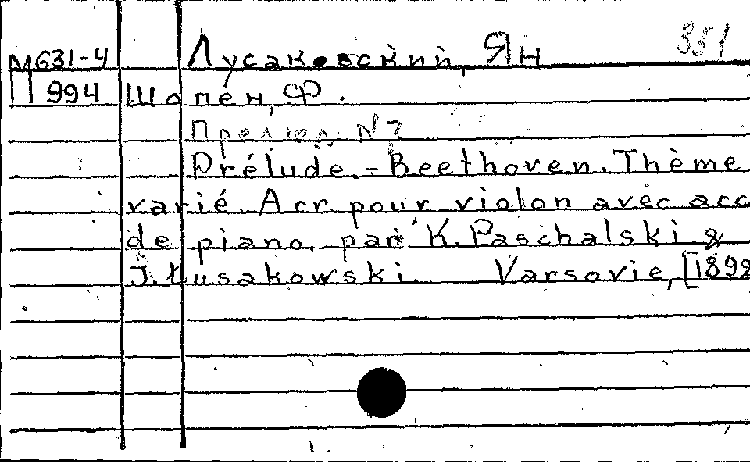 М631-4 Лусаковский, Ян 351
П994 Шопен, Ф.
Прелюд. N7
Prélude. - Beethoven. Thème
varié. Arr. pour violon avec acc
de piano. par K. Paschalski &
J. Łusakowski Varsovie, [1898